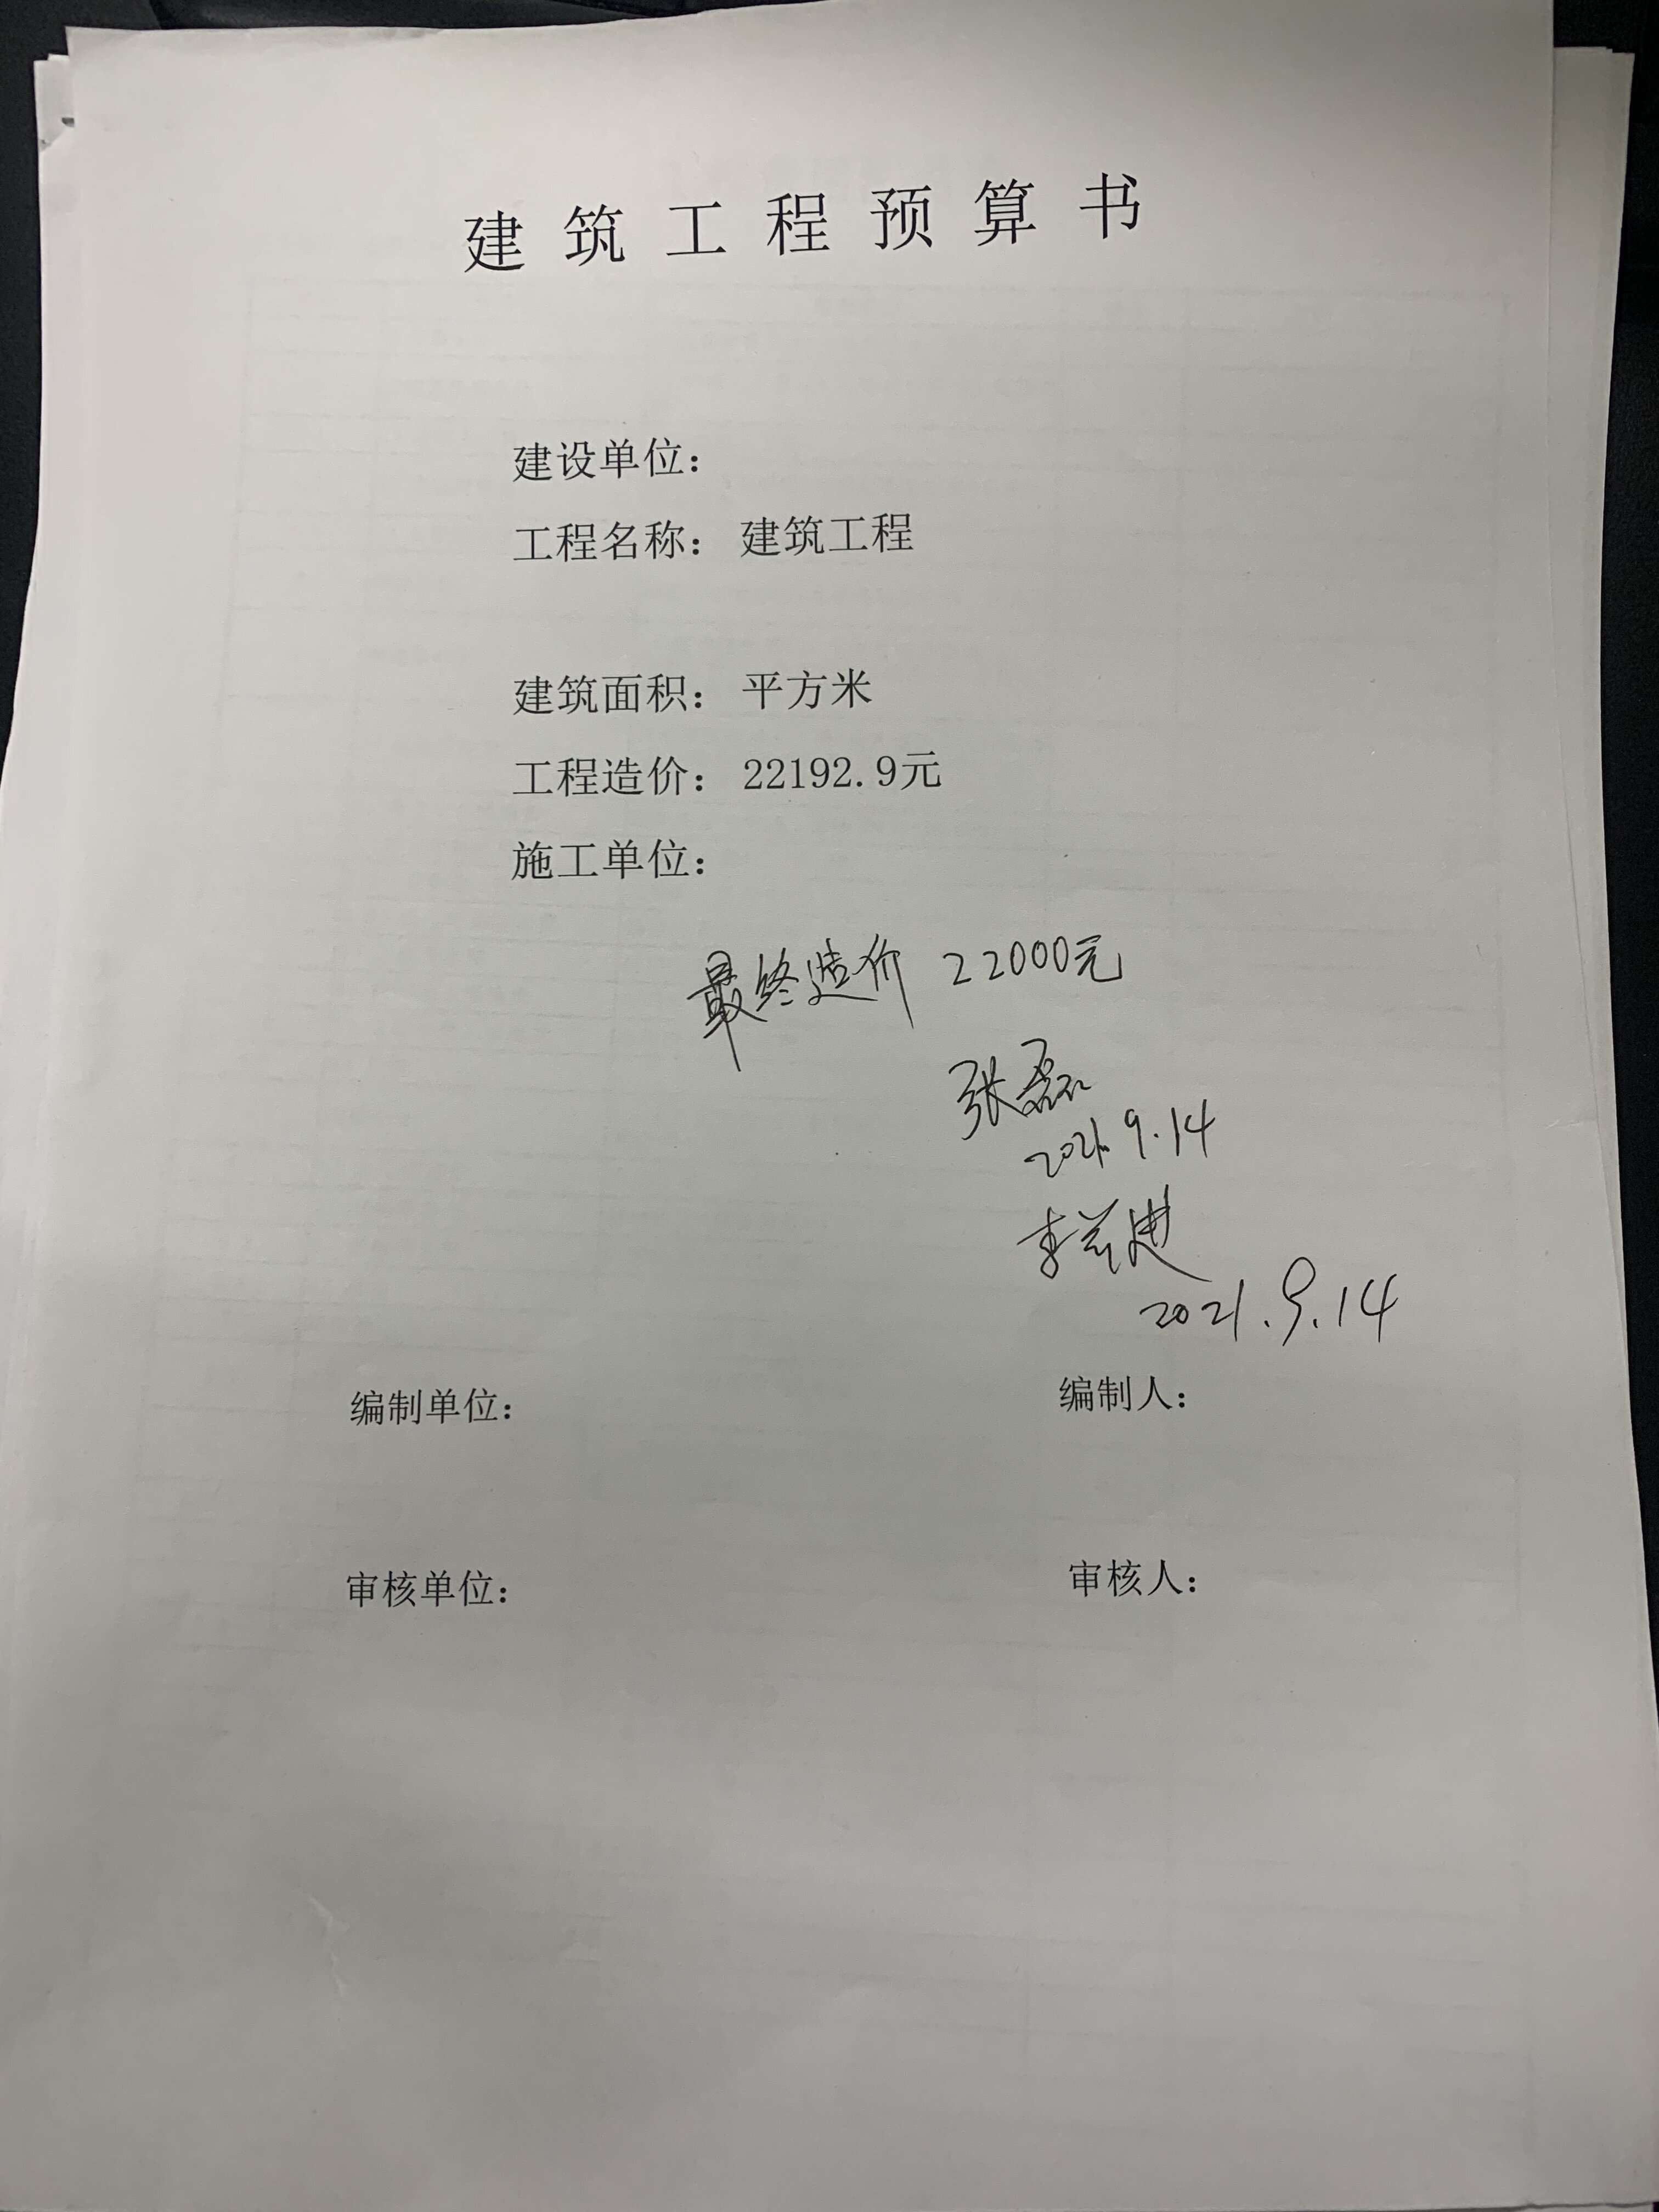 建筑工程预算书
建设单位：
工程名称： 建筑工程
建筑面积： 平方米
工程造价： 22192.9元
施工单位：
最终造价 22000元
张磊
2021.9.14
李兰进
2021.9.14
编制单位： 编制人：
审核单位： 审核人：